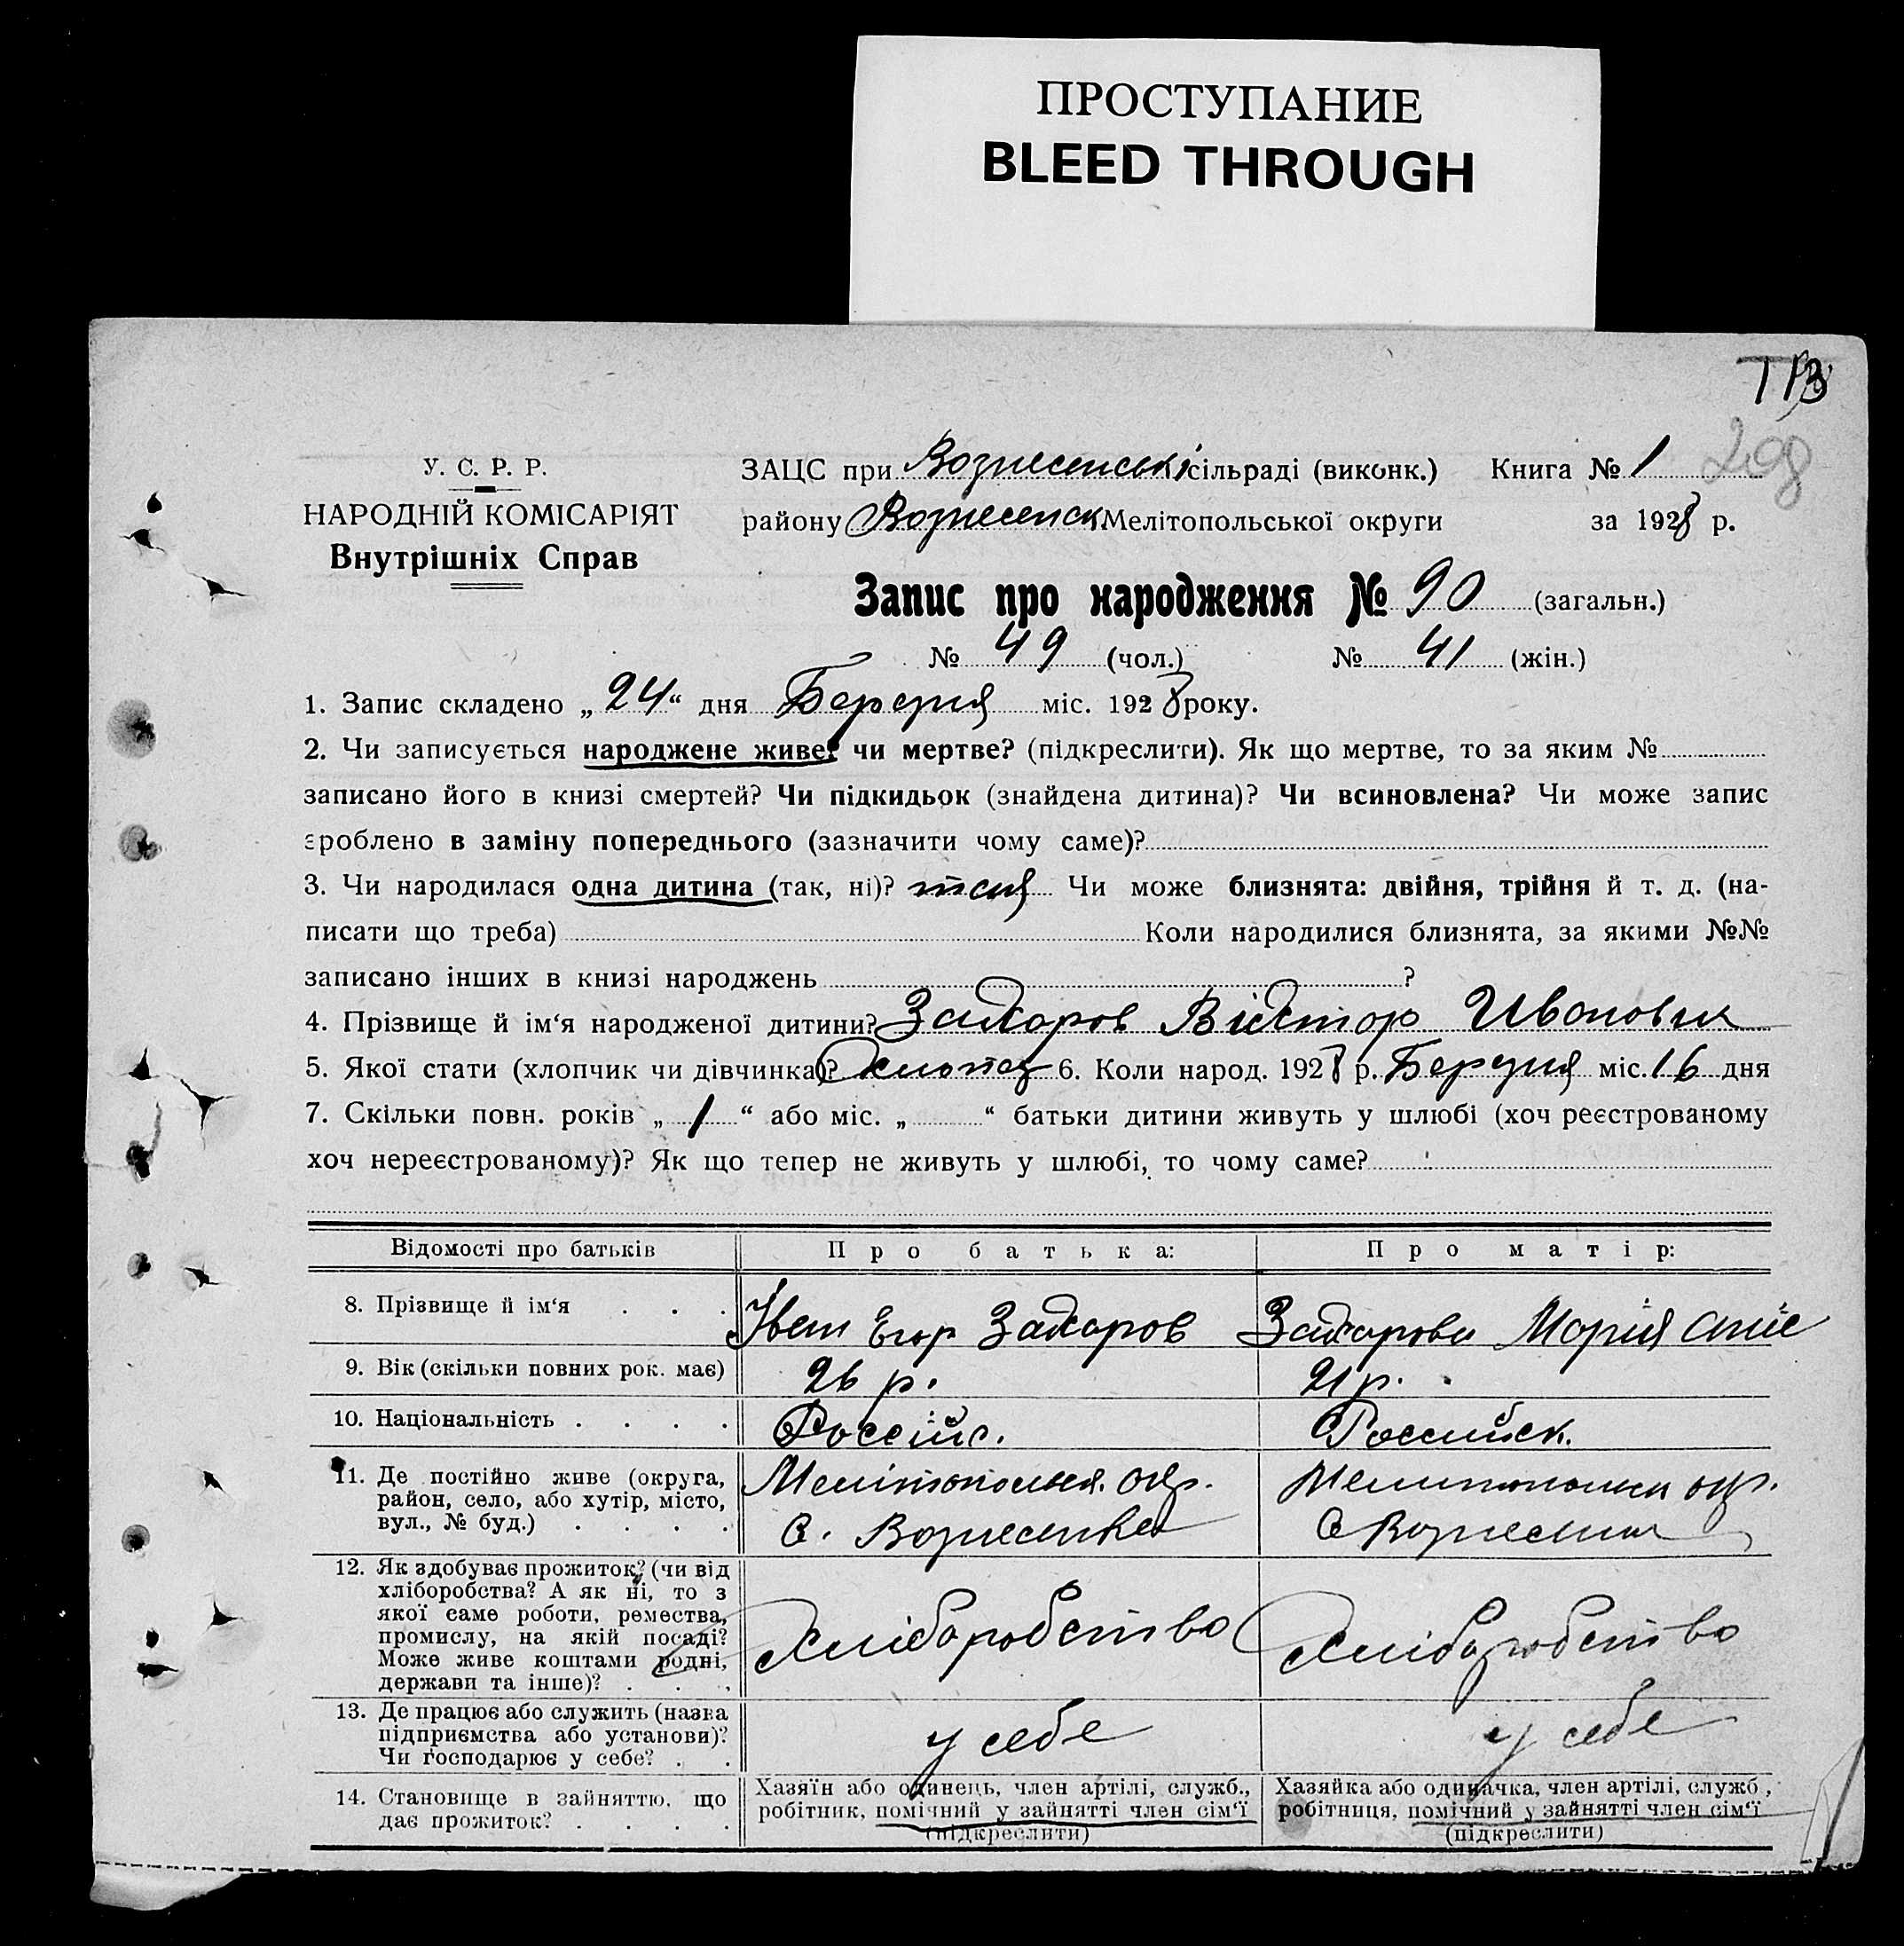 ПРОСТУПАНИЕ
BLEED THROUGH
113
298
У. С. Р. Р.
НАРОДНІЙ КОМІСАРІЯТ
Внутрішніх Справ
ЗАЦС при Вознесенській сільраді (виконк.) Книга № 1
району Вознесенск Мелітопольської округи за 1928 р.
Запис про народження № 90 (загальн.)
№ 49 (чол.) № 41 (жін.)
1. Запис складено „ 24 “ дня Березня міс. 1928 року.
2. Чи записується народжене живе, чи мертве? (підкреслити). Як що мертве, то за яким №
записано його в книзі смертей? Чи підкидьок (знайдена дитина)? Чи всиновлена? Чи може запис
зроблено в заміну попереднього (зазначити чому саме)?
3. Чи народилася одна дитина (так, ні)? Чи може близнята: двійня, трійня й т. д. (на-
писати що треба) Коли народилися близнята, за якими №№
записано інших в книзі народжень ?
4. Прізвище й ім‘я народженої дитини? Захаров Віктор Иванович
5. Якої стати (хлопчик чи дівчинка)? Хлопец 6. Коли народ. 1928 р. Березня міс. 16 дня
7. Скільки повн. років „ 1 “ або міс. „ “ батьки дитини живуть у шлюбі (хоч реєстрованому
хоч нереєстрованому)? Як що тепер не живуть у шлюбі, то чому саме?
Відомості про батьків Про батька: Про матір:
8. Прізвище й ім‘я . . . Іван Егор Захаров Захарова Мария
9. Вік (скільки повних рок. має) 26 р. 21 р.
10. Національність . . . . Россійс. Российск.
11. Де постійно живе (округа,
район, село, або хутір, місто,
вул., № буд.) . . . .
Мелітопольск. окр.
с. Вознесенка
Мелитопольск окр.
с Вознесенка
12. Як здобуває прожиток? (чи від
хліборобства? А як ні, то з
якої саме роботи, ремества,
промислу, на якій посаді?
Може живе коштами родні,
держави та інше)? . . .
Хліборобство
Хліборобство
13. Де працює або служить (назва
підприємства або установи)?
Чи господарює у себе? . .
у себе
у себе
14. Становище в зайняттю, що
дає прожиток? . . . .
Хазяїн або одинець, член артілі, служб.,
робітник, помічний у зайнятті член сім‘ї
(підкреслити)
Хазяйка або одиначка, член артілі, служб.,
робітниця, помічний у зайнятті член сім‘ї
(підкреслити)